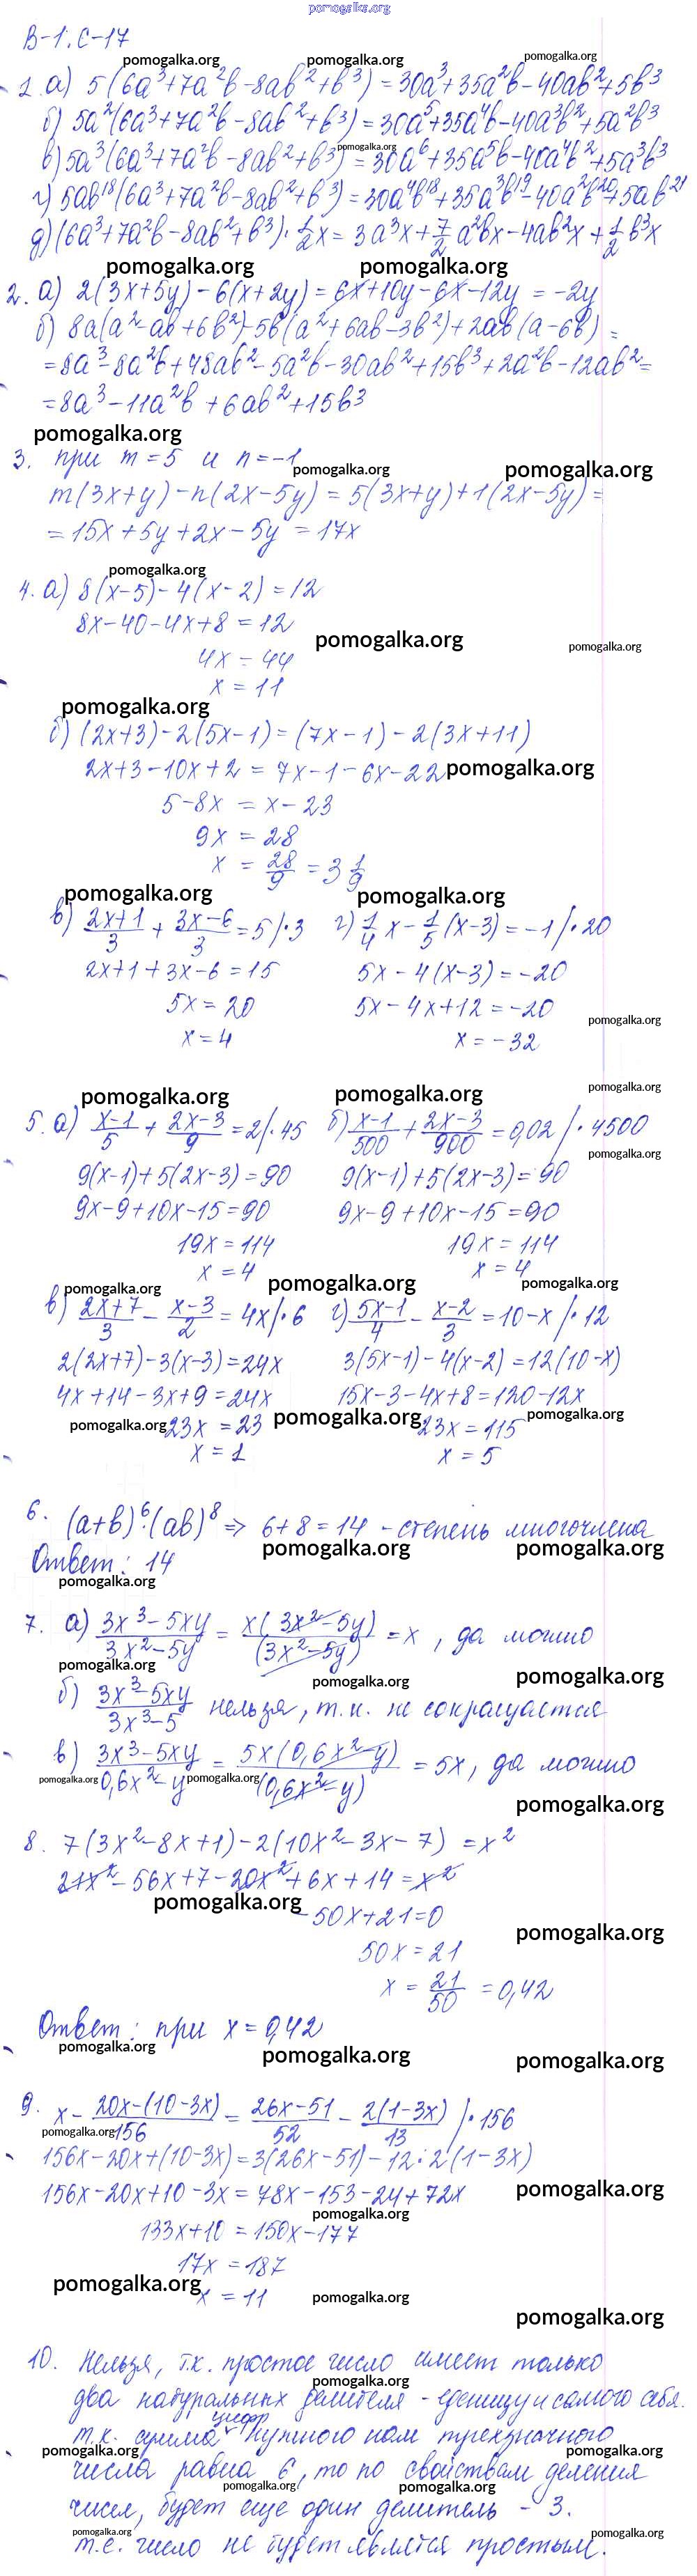 pomogalka.org
В-1. С-17
pomogalka.org pomogalka.org pomogalka.org
1. а) 5(6a³+7a²b-8ab²+b³)=30a³+35a²b-40ab²+5b³
б) 5a²(6a³+7a²b-8ab²+b³)=30a⁵+35a⁴b-40a³b²+5a²b³
pomogalka.org
в) 5a³(6a³+7a²b-8ab²+b³)=30a⁶+35a⁵b-40a⁴b²+5a³b³
г) 5ab¹⁸(6a³+7a²b-8ab²+b³)=30a⁴b¹⁸+35a³b¹⁹-40a²b²⁰+5ab²¹
д) (6a³+7a²b-8ab²+b³)·1/2x=3a³x+7/2a²bx-4ab²x+1/2b³x
pomogalka.org pomogalka.org
2. а) 2(3x+5y)-6(x+2y)=6x+10y-6x-12y=-2y
б) 8a(a²-ab+6b²)-5b(a²+6ab-3b²)+2ab(a-6b)=
=8a³-8a²b+48ab²-5a²b-30ab²+15b³+2a²b-12ab²=
=8a³-11a²b+6ab²+15b³
pomogalka.org
3. при m=5 и n=-1
pomogalka.org pomogalka.org
m(3x+y)-n(2x-5y)=5(3x+y)+1(2x-5y)=
=15x+5y+2x-5y=17x
pomogalka.org
4. а) 8(x-5)-4(x-2)=12
8x-40-4x+8=12
pomogalka.org pomogalka.org
4x=44
x=11
pomogalka.org
б) (2x+3)-2(5x-1)=(7x-1)-2(3x+11)
2x+3-10x+2=7x-1-6x-22 pomogalka.org
5-8x=x-23
9x=28
x=28/9=3 1/9
pomogalka.org pomogalka.org
в) (2x+1)/3+(3x-6)/3=5 /·3 г) 1/4x-1/5(x-3)=-1 /·20
2x+1+3x-6=15 5x-4(x-3)=-20
5x=20 5x-4x+12=-20
pomogalka.org
x=4 x=-32
pomogalka.org pomogalka.org pomogalka.org
5. а) (x-1)/5+(2x-3)/9=2 /·45 б) (x-1)/500+(2x-3)/900=0,02 /·4500
pomogalka.org
9(x-1)+5(2x-3)=90 9(x-1)+5(2x-3)=90
9x-9+10x-15=90 9x-9+10x-15=90
19x=114 19x=114
x=4 x=4
pomogalka.org pomogalka.org pomogalka.org
в) (2x+7)/3-(x-3)/2=4x /·6 г) (5x-1)/4-(x-2)/3=10-x /·12
2(2x+7)-3(x-3)=24x 3(5x-1)-4(x-2)=12(10-x)
4x+14-3x+9=24x 15x-3-4x+8=120-12x
pomogalka.org 23x=23 pomogalka.org 23x=115 pomogalka.org
x=1 x=5
6. (a+b)⁶·(ab)⁸ => 6+8=14 - степень многочлена
pomogalka.org pomogalka.org
Ответ: 14
pomogalka.org
7. а) (3x³-5xy)/(3x²-5y)=x(3x²-5y)/(3x²-5y)=x, да можно
pomogalka.org pomogalka.org pomogalka.org
б) (3x³-5xy)/(3x³-5) нельзя, т.к. не сокращается
в) (3x³-5xy)/(0,6x²-y)=5x(0,6x²-y)/(0,6x²-y)=5x, да можно
pomogalka.org pomogalka.org
pomogalka.org
8. 7(3x²-8x+1)-2(10x²-3x-7)=x²
21x²-56x+7-20x²+6x+14=x²
pomogalka.org
-50x+21=0
pomogalka.org
50x=21
x=21/50=0,42
Ответ: при x=0,42
pomogalka.org pomogalka.org pomogalka.org
9. x-(20x-(10-3x))/156=(26x-51)/52-2(1-3x)/13 /·156
pomogalka.org
156x-20x+(10-3x)=3(26x-51)-12·2(1-3x)
156x-20x+10-3x=78x-153-24+72x
pomogalka.org
pomogalka.org
133x+10=150x-177
17x=187
pomogalka.org x=11 pomogalka.org
pomogalka.org
10. Нельзя, т.к. простое число имеет только
pomogalka.org
два натуральных делителя - единицу и самого себя.
т.к. сумма цифр нужного нам трехзначного
pomogalka.org pomogalka.org
числа равна 6, то по свойствам деления
pomogalka.org pomogalka.org
чисел, будет еще один делитель - 3.
pomogalka.org pomogalka.org
т.е. число не будет являтся простым.